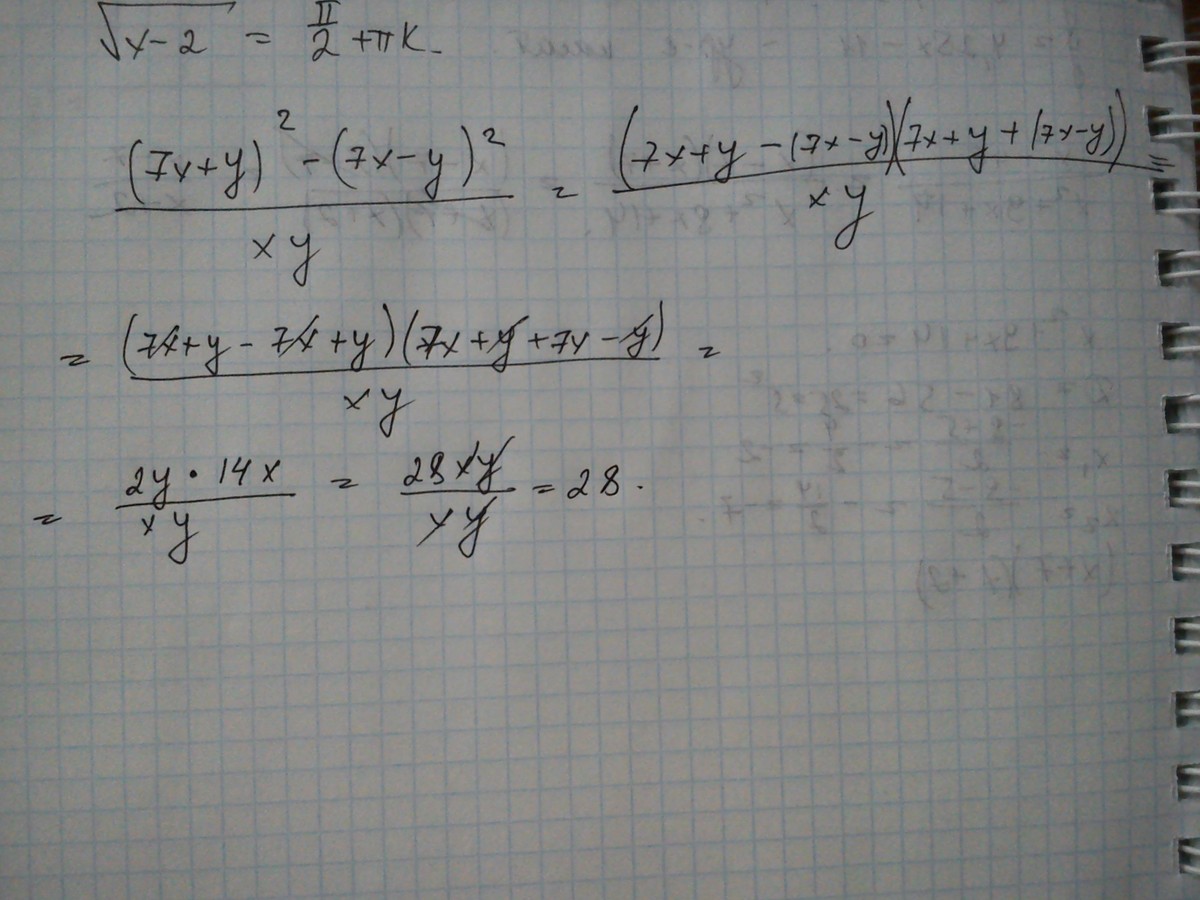 √(x-2) = π/2 + πk.
((7x+y)² - (7x-y)²)/(xy) = ((7x+y-(7x-y))(7x+y+(7x-y)))/(xy) =
= ((7x+y-7x+y)(7x+y+7x-y))/(xy) =
= (2y · 14x)/(xy) = (28xy)/(xy) = 28.